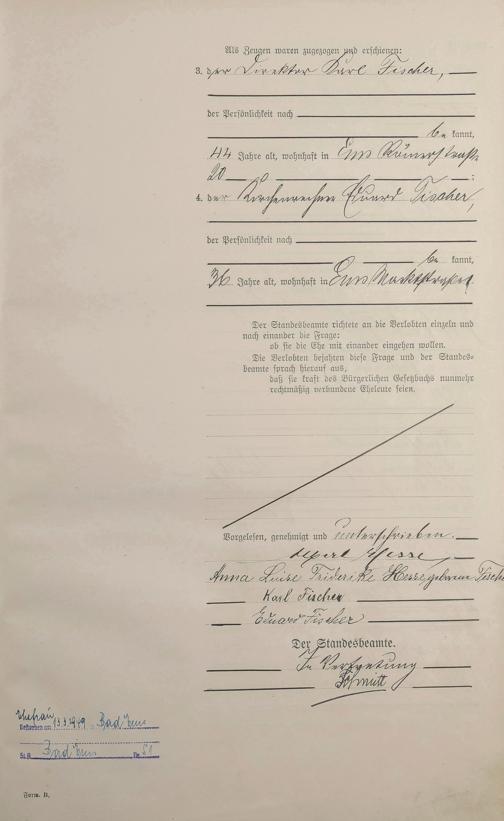 Als Zeugen waren zugezogen und erschienen:
3. der Direktor Karl Fischer,
der Persönlichkeit nach
be kannt,
44 Jahre alt, wohnhaft in Ems Römerstraße
20 ;
4. der Kirchenrechner Eduard Fischer,
der Persönlichkeit nach
be kannt,
36 Jahre alt, wohnhaft in Ems Marktstraße
Der Standesbeamte richtete an die Verlobten einzeln und
nach einander die Frage:
ob sie die Ehe mit einander eingehen wollen.
Die Verlobten bejahten diese Frage und der Standes-
beamte sprach hierauf aus,
daß sie kraft des Bürgerlichen Gesetzbuchs nunmehr
rechtmäßig verbundene Eheleute seien.
Vorgelesen, genehmigt und unterschrieben.
Hesse
Anna Luise Friderike Hesse geborene Fische
Karl Fischer
Eduard Fischer
Der Standesbeamte.
In Vertretung
Schmitt
Ehefrau
Gestorben am 13.3.1949 Bad Ems
St.A. Bad Ems Nr. 51
Form. B.